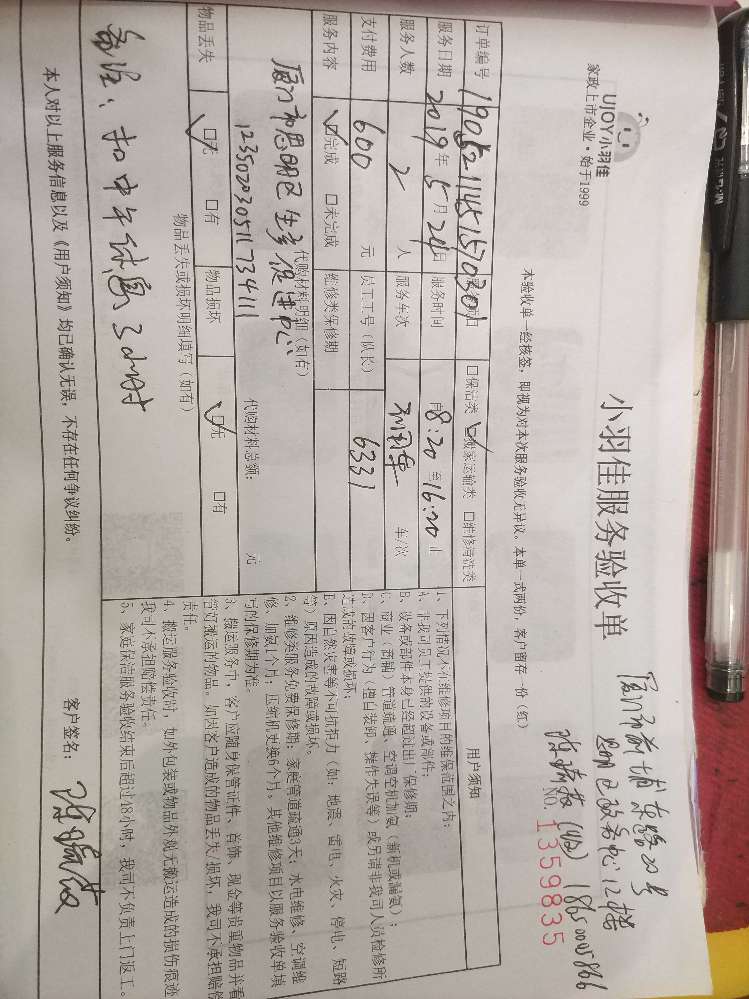 UJOY小羽佳
家政上市企业·始于1999
小羽佳服务验收单
厦门市前埔东路20号
思明区政务中心12楼
NO. 1359835
本验收单一经核签,即视为对本次服务验收无异议。本单一式两份,客户留存一份(红)
订单编号 服务项目 □保洁类 ☑搬家运输类 □维修清洗类
服务日期 2019年5月24日 服务时间 自8:20至16:20止
服务人数 2人 服务车次 车/次
支付费用 600元 员工工号(队长) 6331
服务内容 ☑完成 □未完成 维修类保修期
代购材料明细(如有)
厦门市思明区生产促进中心
代购材料总额: 元
物品丢失 ☑无 □有 物品损坏 ☑无 □有
物品丢失或损坏明细填写(如有)
备注:扣中午休息3小时
用户须知
1、下列情况不在维修项目的维保范围之内:
A、非我司员工提供的设备或部件;
B、设备或部件本身已经超过出厂保修期;
C、商业(商铺)管道疏通、空调空机加氨(新机或漏氨);
D、因客户行为(擅自装卸、操作失误等)或另请非我司人员检修所
造成的故障或损坏;
E、因自然灾害等不可抗拒力(如:地震、雷电、火灾、停电、短路
等)原因造成的故障或损坏。
2、维修类服务免费保修期:家庭管道疏通3天;水电维修、空调维
修、加氨1个月,压缩机更换6个月。其他维修项目以服务验收单填
写的保修期为准。
3、搬运服务中,客户应随身保管证件、首饰、现金等贵重物品并看
管好搬运的物品。如因客户造成的物品丢失/损坏,我司不承担赔偿
责任。
4、搬运服务验收时,如外包装或物品外观无搬运造成的损伤痕迹
我司不承担赔偿责任。
5、家庭保洁服务验收结束后超过48小时,我司不负责上门返工。
本人对以上服务信息以及《用户须知》均已确认无误,不存在任何争议纠纷。
客户签名: